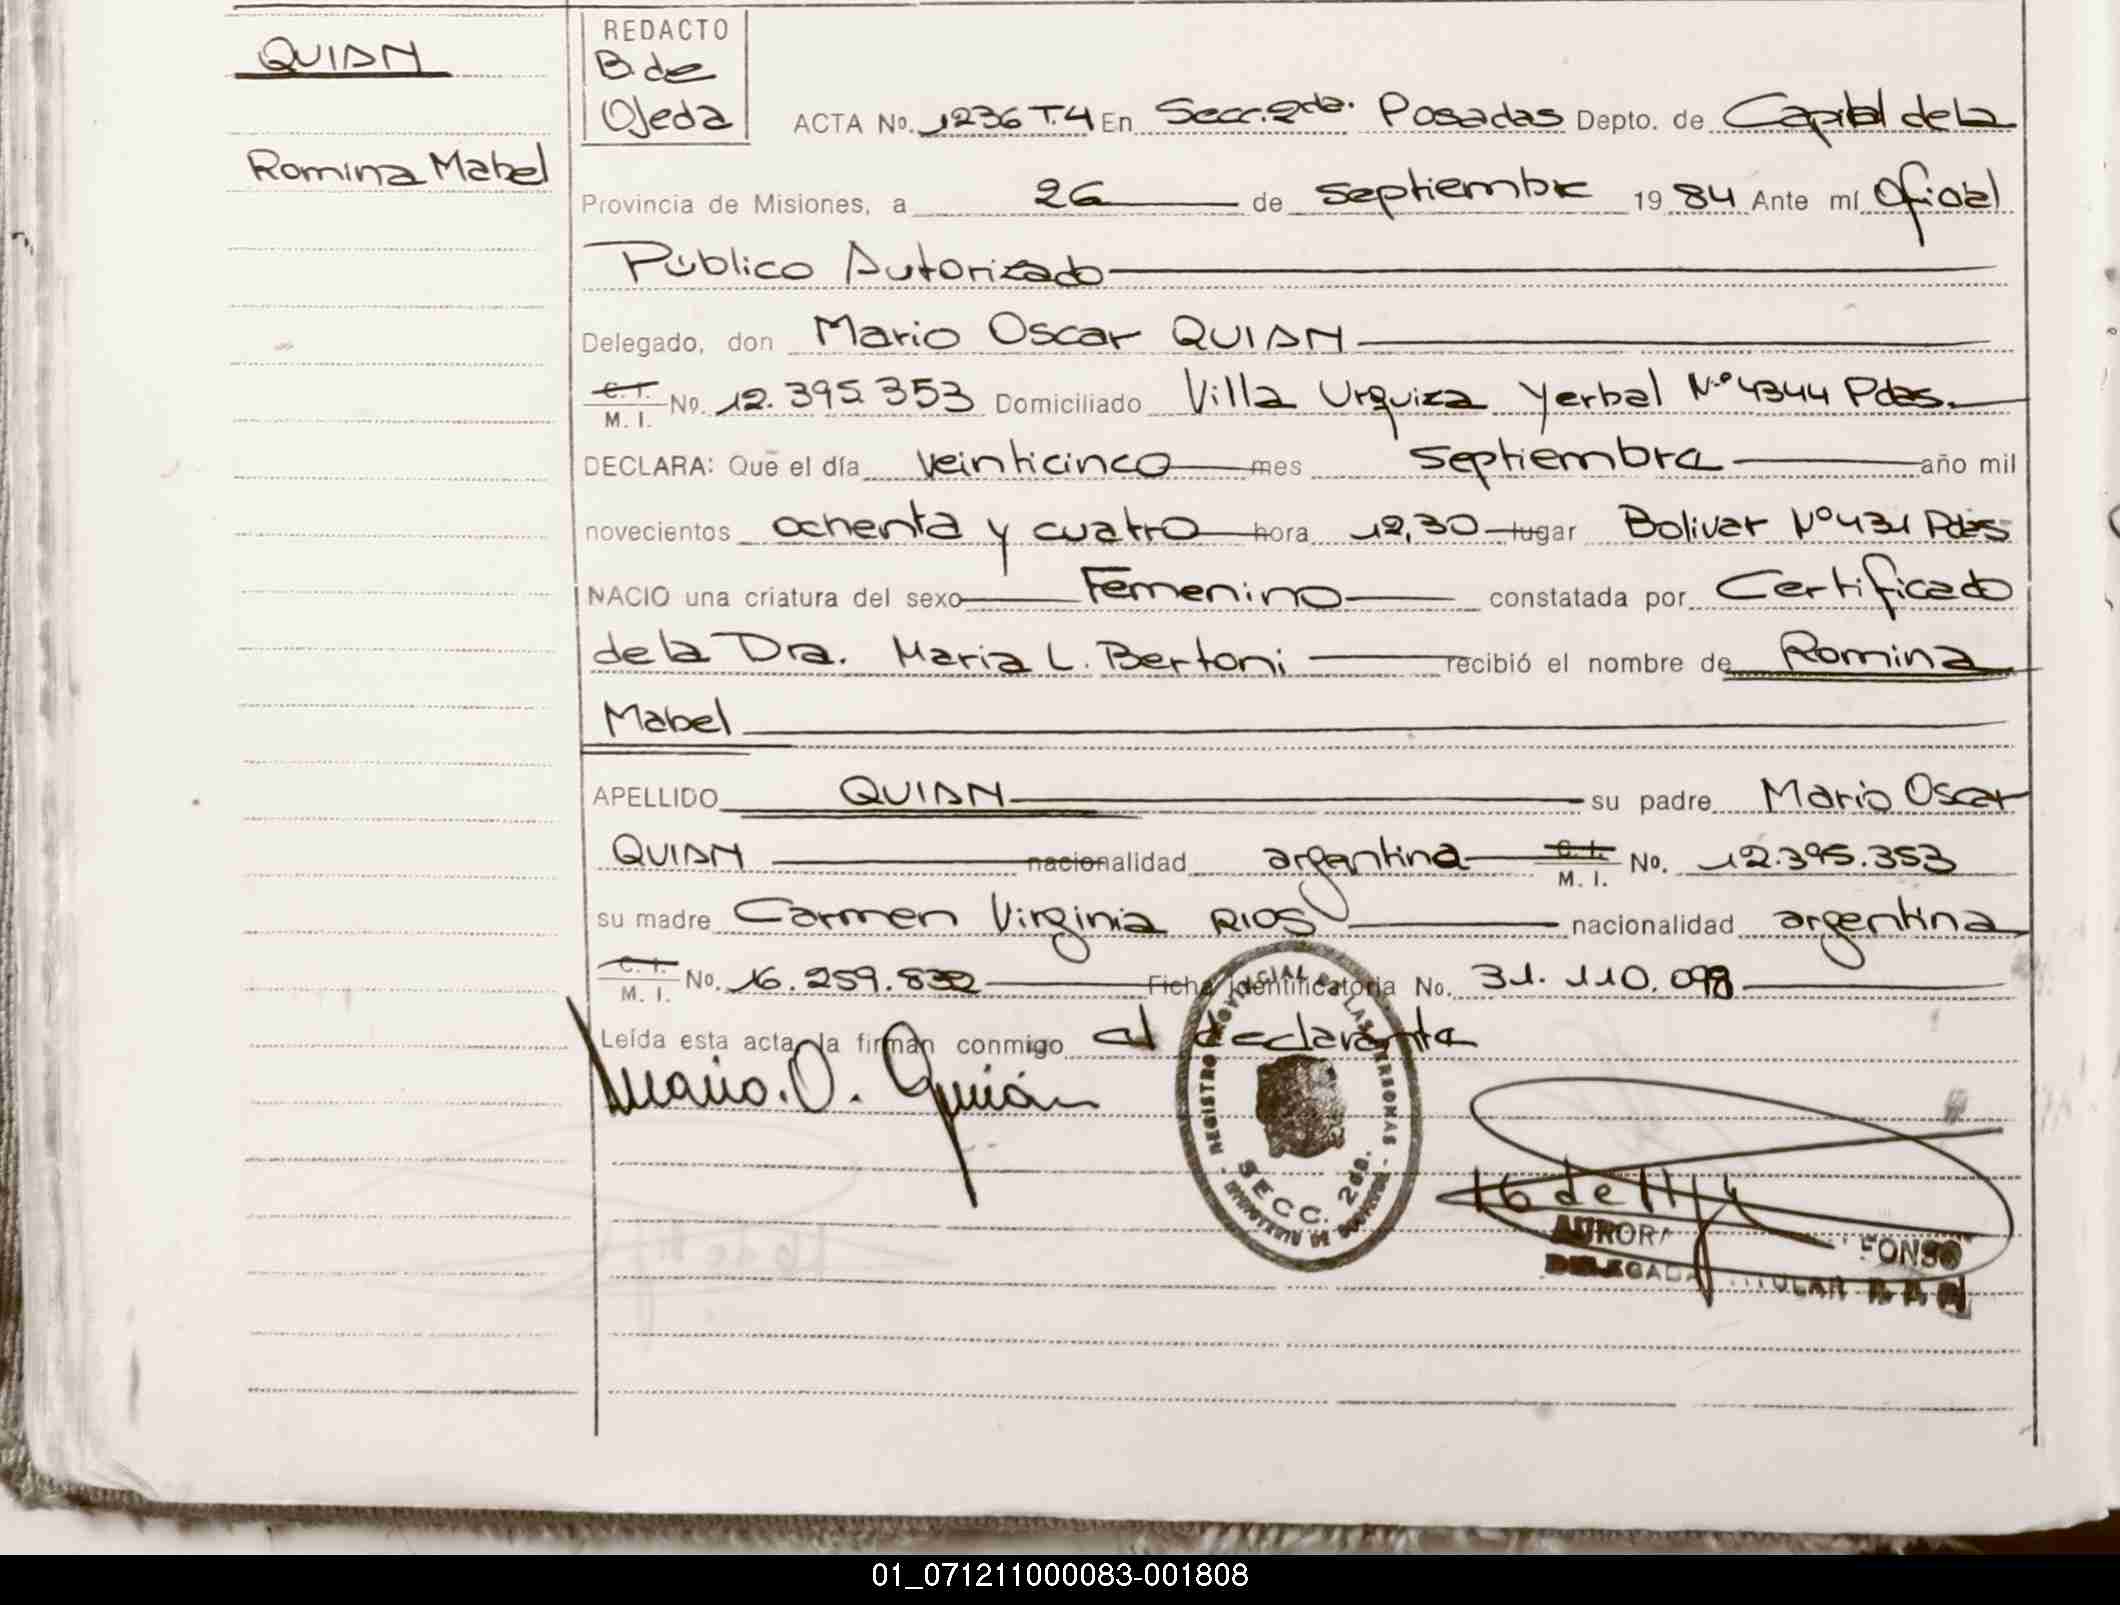 QUIAN
Romina Mabel
REDACTO
B. de
Ojeda
ACTA No. 1236 T.4 En Secc. 2da. Posadas Depto. de Capital de la
Provincia de Misiones, a 26 de septiembre 1984 Ante mí Oficial
Público Autorizado
Delegado, don Mario Oscar QUIAN
C. I.
M. I. No. 12.395.353 Domiciliado Villa Urquiza Yerbal Nº 4344 Pdas.
DECLARA: Que el día veinticinco mes septiembre año mil
novecientos ochenta y cuatro hora 12,30 lugar Bolivar Nº 431 Pdas
NACIO una criatura del sexo Femenino constatada por Certificado
de la Dra. Maria L. Bertoni recibió el nombre de Romina
Mabel
APELLIDO QUIAN su padre Mario Oscar
QUIAN nacionalidad argentina C. I.
M. I. No. 12.395.353
su madre Carmen Virginia RIOS nacionalidad argentina
C. I.
M. I. No. 16.259.832 Ficha identificatoria No. 31.110.098
Leída esta acta, la firman conmigo el declarante
Mario. O. Quián
REGISTRO PROVINCIAL DE LAS PERSONAS
SECC. 2da.
MINISTERIO DE GOBIERNO
AURORA FONSO
DELEGADA TITULAR
01_071211000083-001808